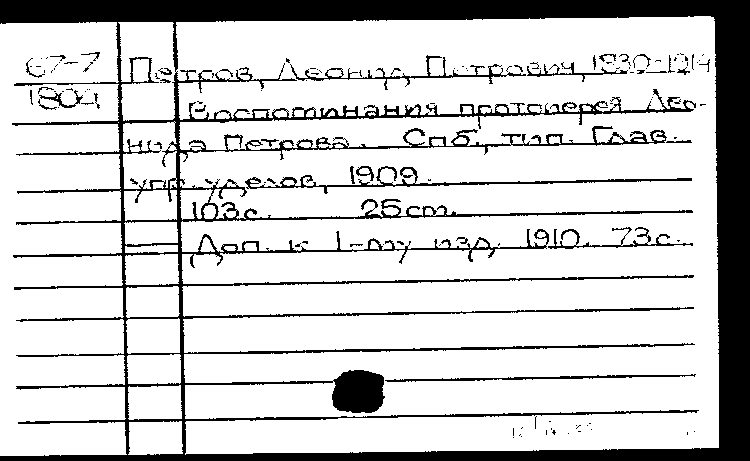 67-7 Петров, Леонид Петрович, 1830-1914
1804 Воспоминания протоиерея Лео-
нида Петрова. Спб., тип. Глав.
упр. уделов, 1909.
103с. 25cm.
— Доп. к 1-му изд. 1910. 73с.